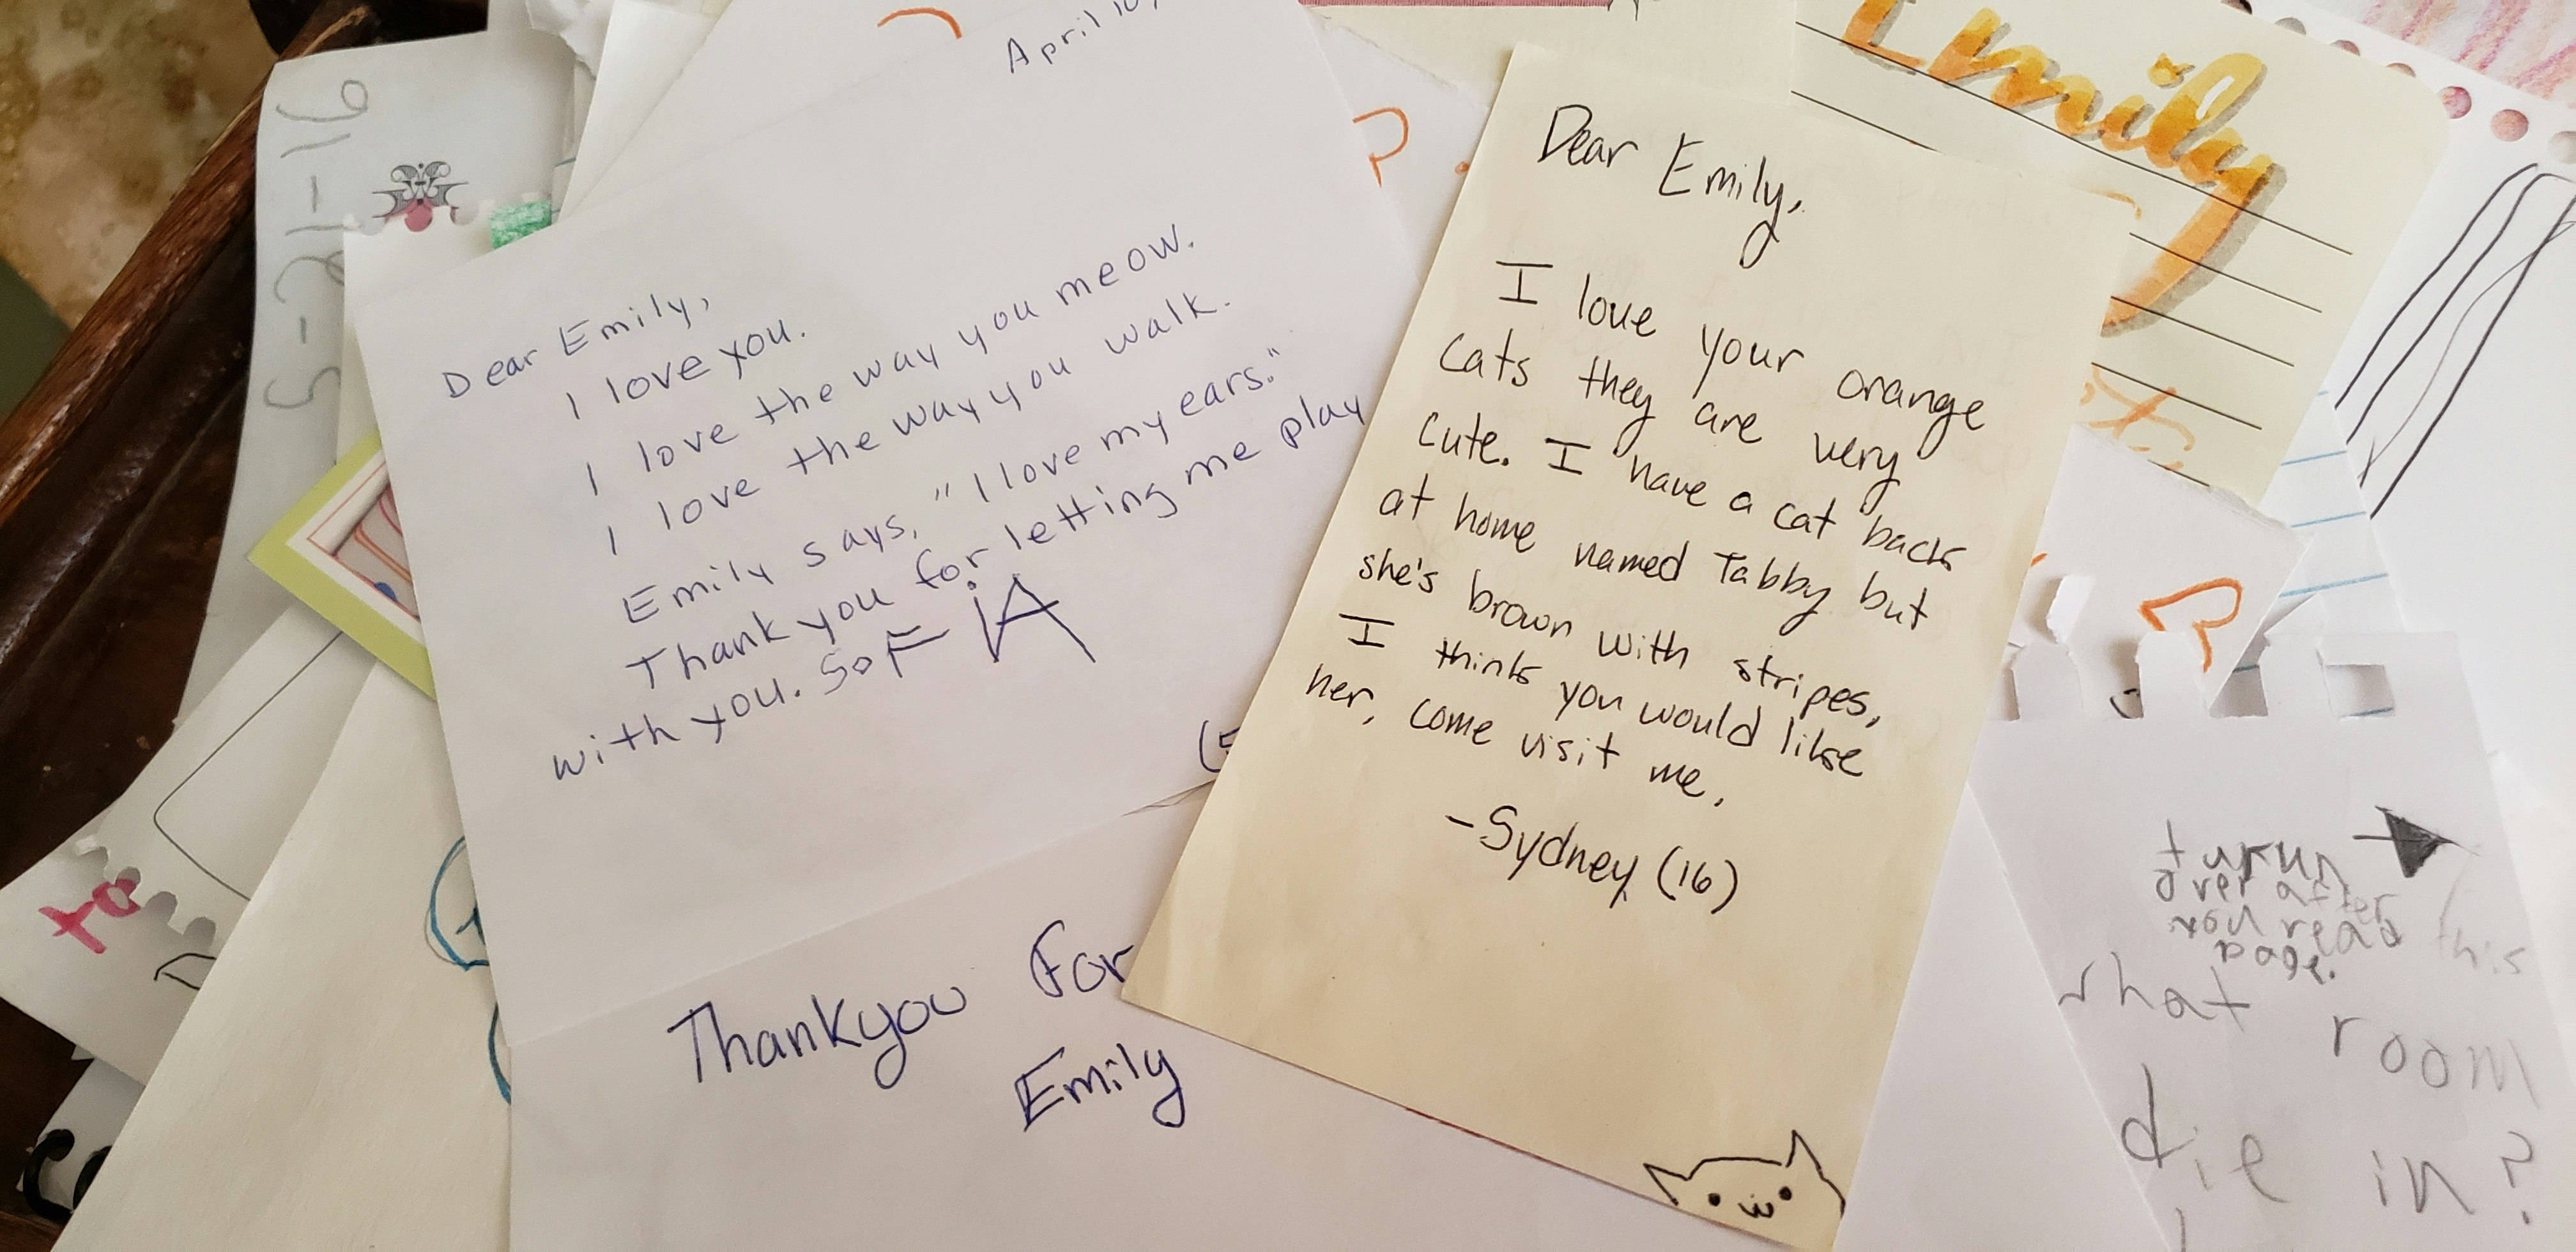 April 10,
Dear Emily,
I love you.
I love the way you meow.
I love the way you walk.
Emily says, "I love my ears."
Thank you for letting me play
with you. SoFiA
(5
Thankyou For
Emily
Dear Emily,
I love your orange
cats they are very
cute. I have a cat back
at home named Tabby but
she's brown with stripes,
I think you would like
her, come visit me,
-Sydney (16)
Emily
turun
over after
you read this
page.
what room
die in?